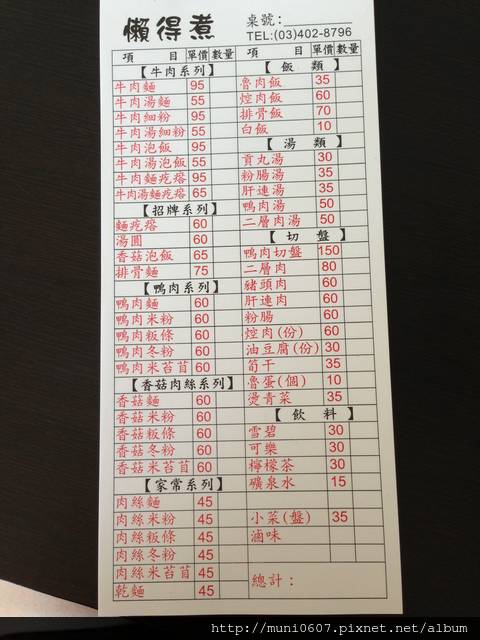 懶得煮
桌號：
TEL:(03)402-8796
項 目 單價 數量
【牛肉系列】
牛肉麵 95
牛肉湯麵 55
牛肉細粉 95
牛肉湯細粉 55
牛肉泡飯 95
牛肉湯泡飯 55
牛肉麵疙瘩 95
牛肉湯麵疙瘩 65
【招牌系列】
麵疙瘩 60
湯圓 60
香菇泡飯 65
排骨麵 75
【鴨肉系列】
鴨肉麵 60
鴨肉米粉 60
鴨肉粄條 60
鴨肉冬粉 60
鴨肉米苔苜 60
【香菇肉絲系列】
香菇麵 60
香菇米粉 60
香菇粄條 60
香菇冬粉 60
香菇米苔苜 60
【家常系列】
肉絲麵 45
肉絲米粉 45
肉絲粄條 45
肉絲冬粉 45
肉絲米苔苜 45
乾麵 45
項 目 單價 數量
【飯 類】
魯肉飯 35
焢肉飯 60
排骨飯 70
白飯 10
【湯 類】
貢丸湯 30
粉腸湯 35
肝連湯 35
鴨肉湯 50
二層肉湯 50
【切 盤】
鴨肉切盤 150
二層肉 80
豬頭肉 60
肝連肉 60
粉腸 60
焢肉(份) 60
油豆腐(份) 30
筍干 35
魯蛋(個) 10
燙青菜 35
【飲 料】
雪碧 30
可樂 30
檸檬茶 30
礦泉水 15
小菜(盤) 35
滷味
總計：
http://muni0607.pixnet.net/album